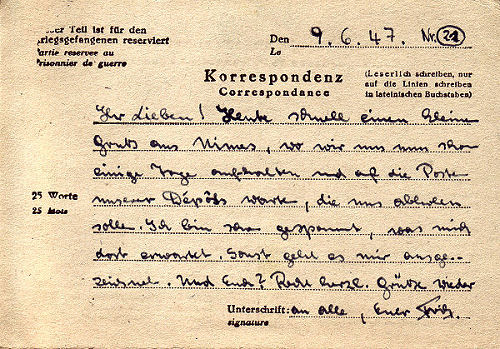 ser Teil ist für den
riegsgefangenen reserviert
Partie reservee au
Prisonnier de guerre
Den 9. 6. 47. Nr. 21
Le
Korrespondenz
Correspondance
(Leserlich schreiben, nur
auf die Linien schreiben
in lateinischen Buchstaben)
Ihr Lieben! Heute schnell einen kleinen
Gruß aus Nimes, wo wir uns nun schon
einige Tage aufhalten und auf die Posten
unserer Dépôts warten, die uns abholen
sollen. Ich bin schon gespannt, was mich
dort erwartet. Sonst geht es mir ausge-
zeichnet. Und Euch? Recht herzl. Grüße wieder
25 Worte
25 Mots
Unterschrift: an alle, Euer Fritz.
signature